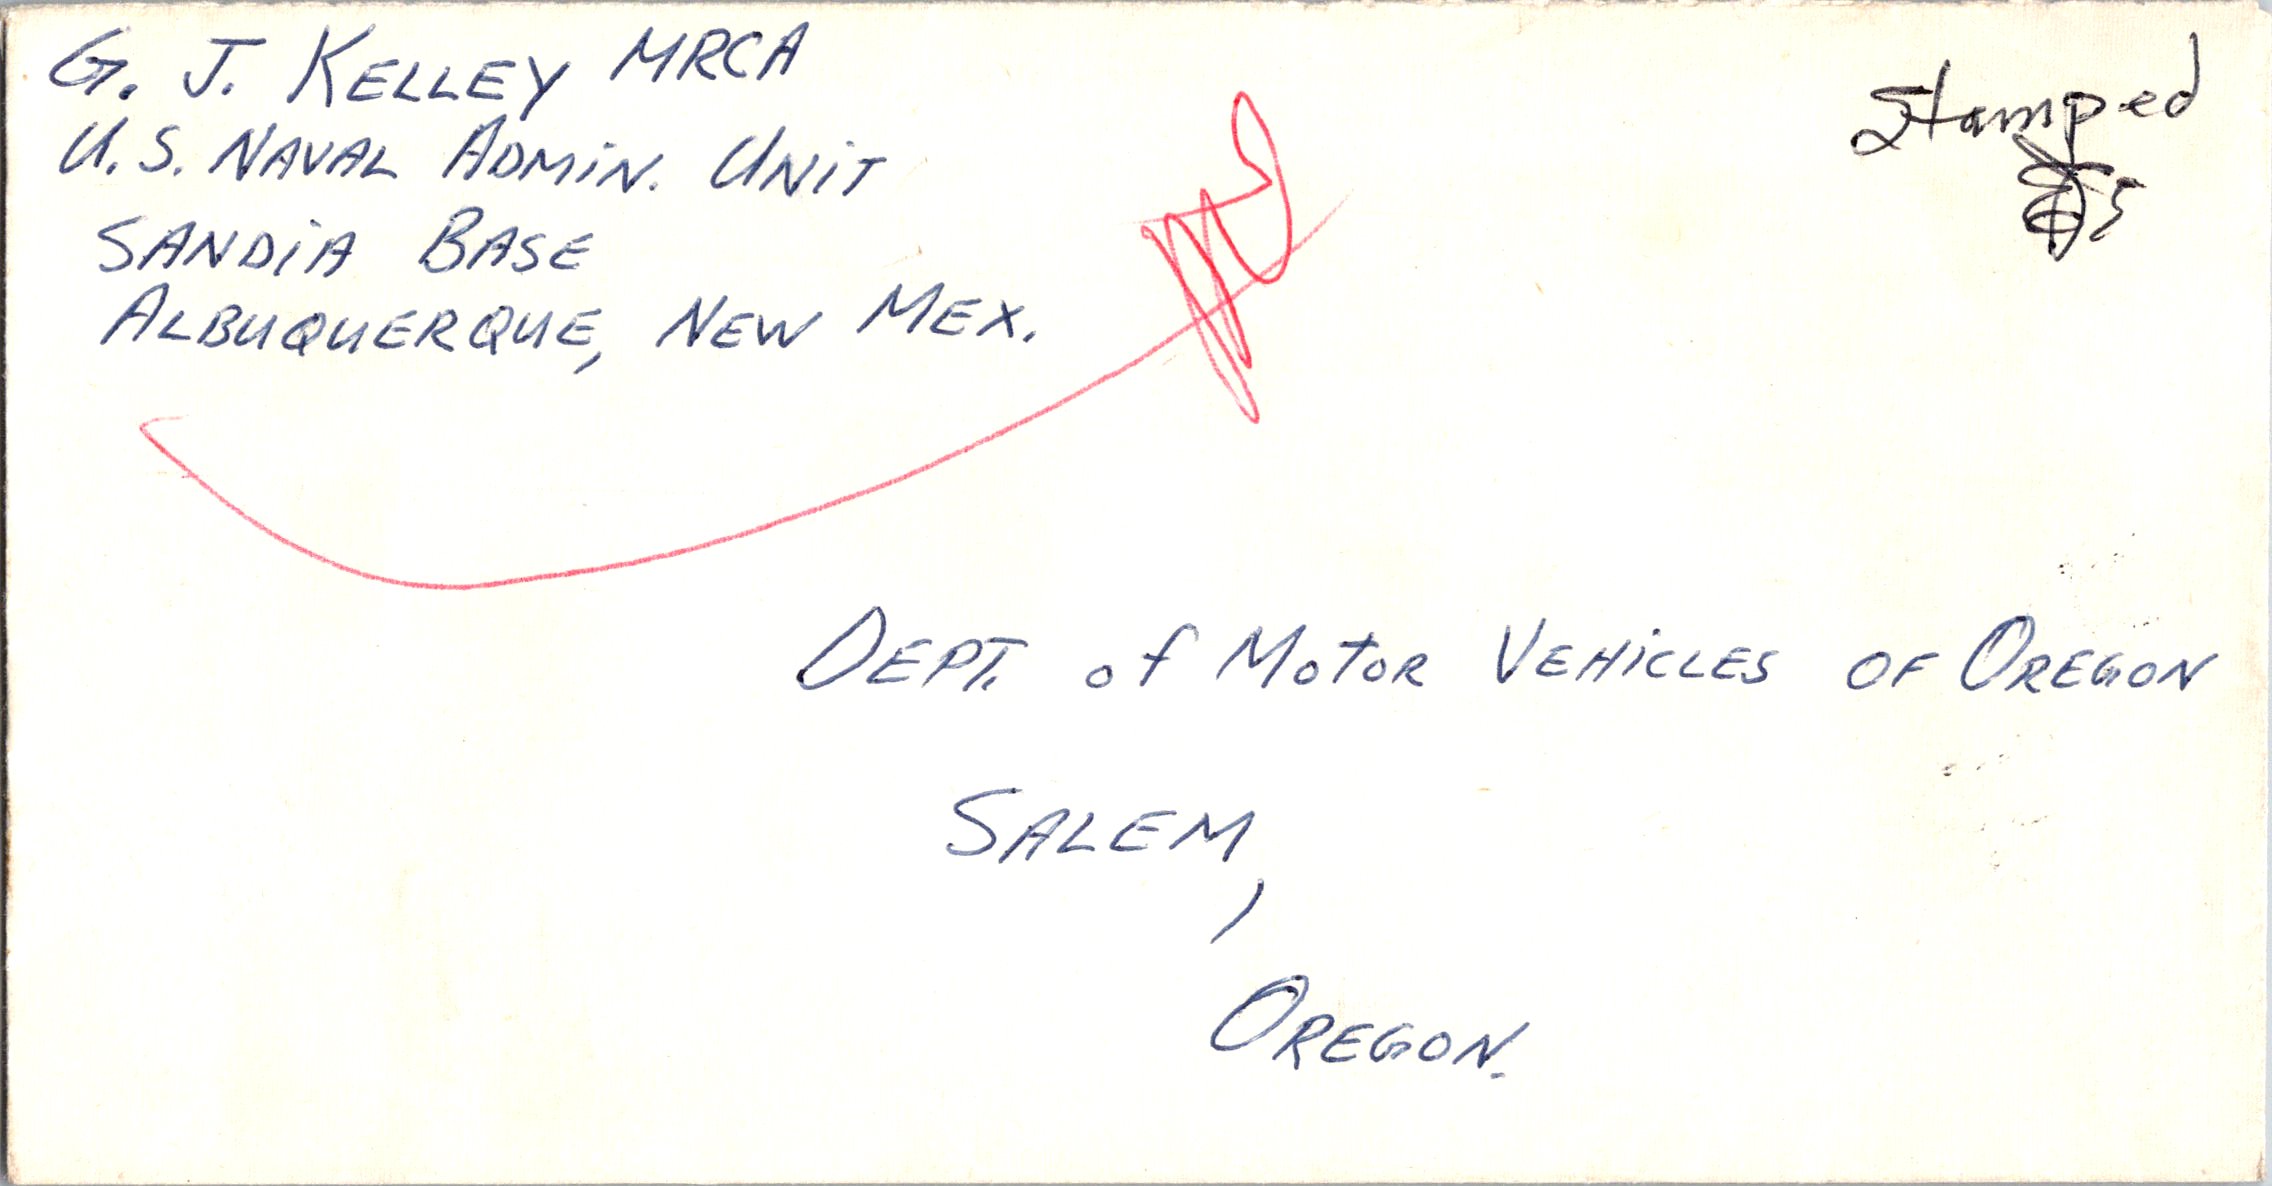 G. J. KELLEY MRCA
U.S. NAVAL ADMIN. UNIT
SANDIA BASE
ALBUQUERQUE, NEW MEX.
Stamped
DEPT. of MOTOR VEHICLES OF OREGON
SALEM,
OREGON.